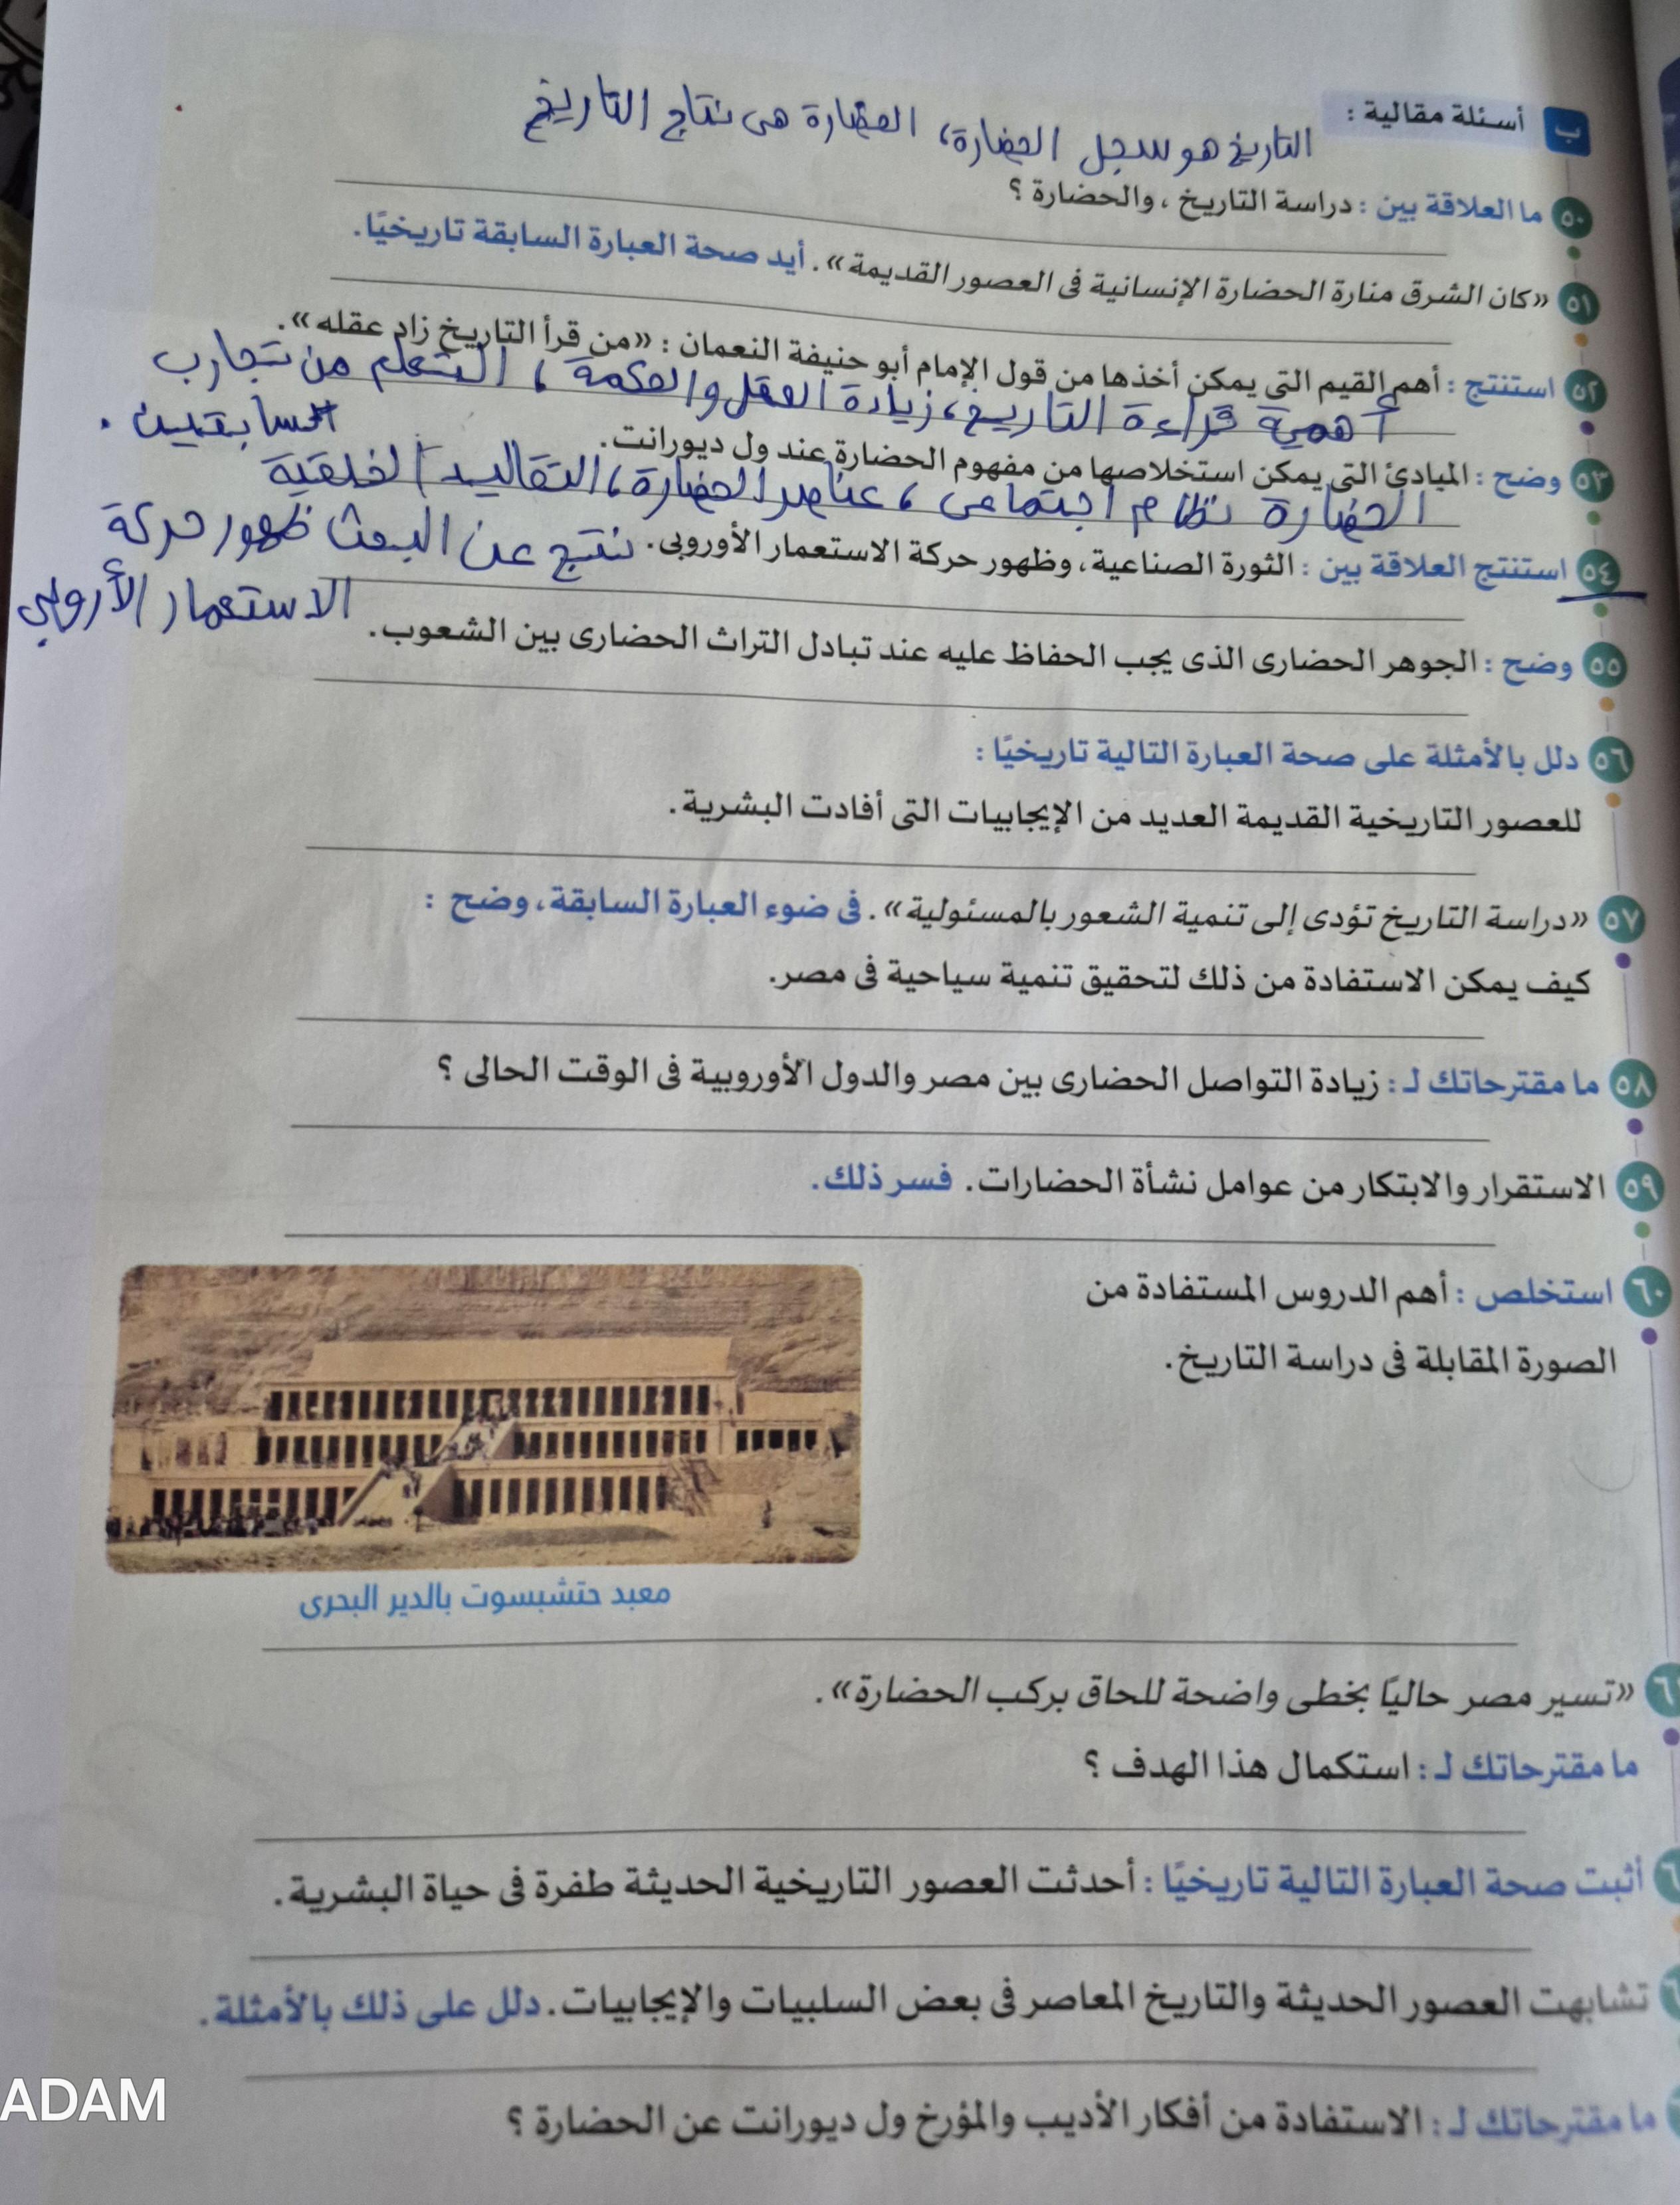 ب أسئلة مقالية :
التاريخ هو سجل الحضارة، الحضارة هى نتاج التاريخ
٥٠ ما العلاقة بين : دراسة التاريخ ، والحضارة ؟
٥١ «كان الشرق منارة الحضارة الإنسانية فى العصور القديمة» . أيد صحة العبارة السابقة تاريخيًا.
٥٢ استنتج : أهم القيم التى يمكن أخذها من قول الإمام أبو حنيفة النعمان : «من قرأ التاريخ زاد عقله» .
أهمية قراءة التاريخ، زيادة العقل والحكمة، التعلم من تجارب
السابقين .
٥٣ وضح : المبادئ التى يمكن استخلاصها من مفهوم الحضارة عند ول ديورانت.
الحضارة نظام اجتماعى، عناصر الحضارة، التقاليد الخلقية
٥٤ استنتج العلاقة بين : الثورة الصناعية، وظهور حركة الاستعمار الأوروبى.
نتج عن البعث ظهور حركة
الاستعمار الأروبى
٥٥ وضح : الجوهر الحضارى الذى يجب الحفاظ عليه عند تبادل التراث الحضارى بين الشعوب.
٥٦ دلل بالأمثلة على صحة العبارة التالية تاريخيًا :
للعصور التاريخية القديمة العديد من الإيجابيات التى أفادت البشرية.
٥٧ «دراسة التاريخ تؤدى إلى تنمية الشعور بالمسئولية» . فى ضوء العبارة السابقة، وضح :
كيف يمكن الاستفادة من ذلك لتحقيق تنمية سياحية فى مصر.
٥٨ ما مقترحاتك لـ : زيادة التواصل الحضارى بين مصر والدول الأوروبية فى الوقت الحالى ؟
٥٩ الاستقرار والابتكار من عوامل نشأة الحضارات. فسر ذلك.
٦٠ استخلص : أهم الدروس المستفادة من
الصورة المقابلة فى دراسة التاريخ.
معبد حتشبسوت بالدير البحرى
«تسير مصر حاليًا بخطى واضحة للحاق بركب الحضارة» .
ما مقترحاتك لـ : استكمال هذا الهدف ؟
أثبت صحة العبارة التالية تاريخيًا : أحدثت العصور التاريخية الحديثة طفرة فى حياة البشرية.
تشابهت العصور الحديثة والتاريخ المعاصر فى بعض السلبيات والإيجابيات. دلل على ذلك بالأمثلة.
ما مقترحاتك لـ : الاستفادة من أفكار الأديب والمؤرخ ول ديورانت عن الحضارة ؟
ADAM